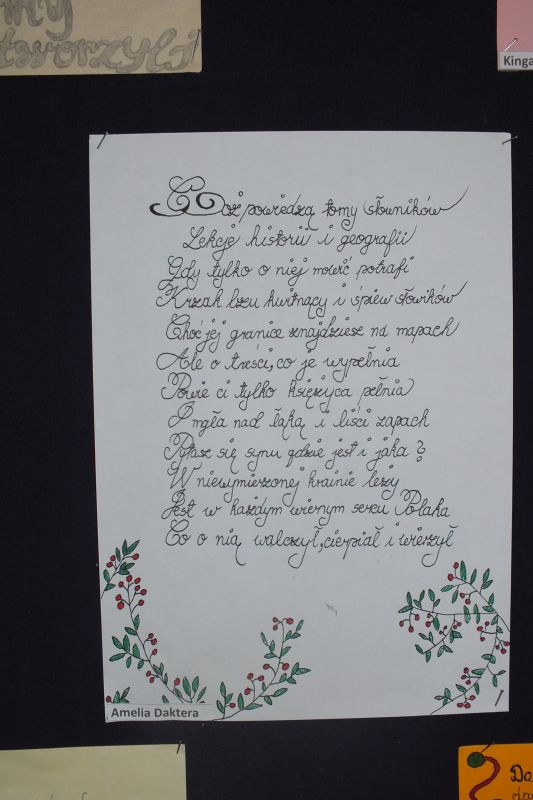 my
tworzyli
Kinga
Cóż powiedzą tomy słowników
Lekcje historii i geografii
Gdy tylko o niej mówić potrafi
Krzak bzu kwitnący i śpiew słowików
Choć jej granice znajdziesz na mapach
Ale o treści, co je wypełnia
Powie ci tylko księżyca pełnia
I mgła nad łąką i liści zapach
Pytasz się synu gdzie jest i jaka?
W niewymierzonej krainie leży
Jest w każdym wiernym sercu Polaka
Co o nią walczył, cierpiał i wierzył
Amelia Daktera